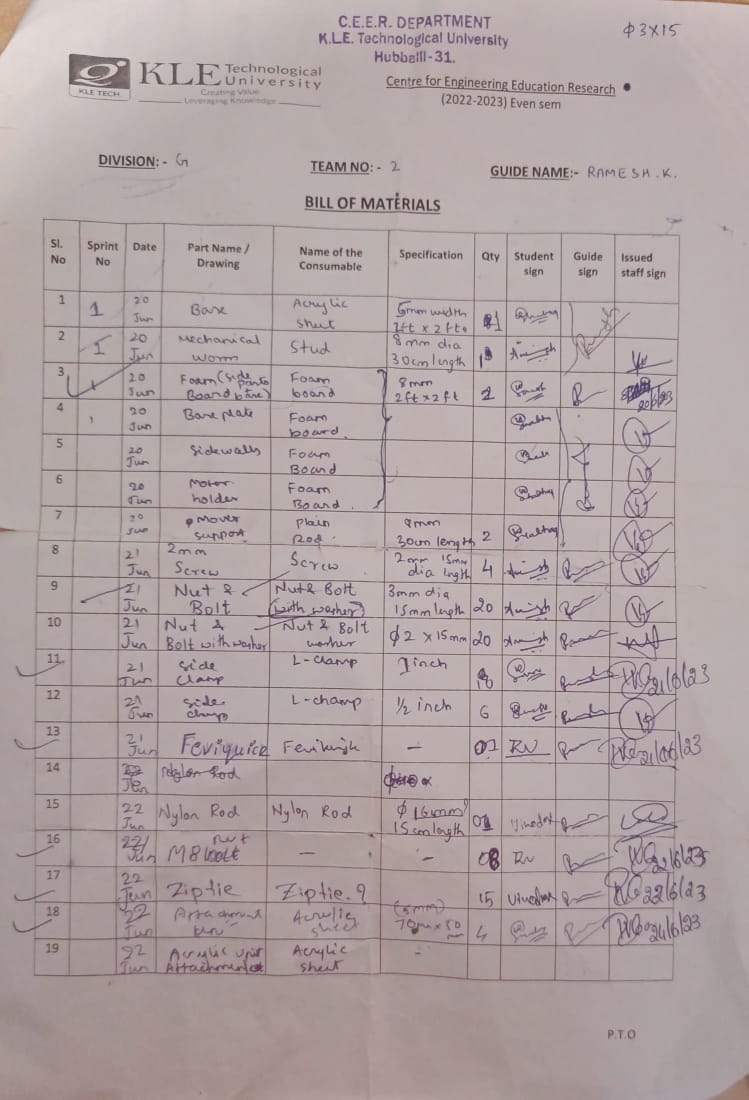 C.E.E.R. DEPARTMENT
K.L.E. Technological University
Hubballi-31.
ϕ3×15
KLE TECH.
KLE Technological University
Creating Value
Leveraging Knowledge
Centre for Engineering Education Research
(2022-2023) Even sem
DIVISION: - G
TEAM NO: - 2
GUIDE NAME:- RAMESH.K.
BILL OF MATERIALS
Sl. No Sprint No Date Part Name / Drawing Name of the Consumable Specification Qty Student sign Guide sign Issued staff sign
1 1 20 Jun Base Acrylic sheet 5mm width 2ft x 2ft 1
2 1 20 Jun Mechanical worm Stud 8mm dia 30cm length 1
3 20 Jun Foam board 8mm 2ft x 2ft 2
4 20 Jun Base plate Foam board
5 20 Jun Sidewalls Foam Board
6 20 Jun Motor holder Foam Board
7 20 Jun Mover support Plain Rod 30cm length 2
8 21 Jun 2mm Screw Screw 2mm dia 15mm length 4
9 21 Jun Nut & Bolt Nut & Bolt (with washer) 3mm dia 15mm length 20
10 21 Jun Nut & Bolt with washer Nut & Bolt washer ϕ2 x 15mm 20
11 21 Jun Side clamp L-clamp 1inch 21/6/23
12 21 Jun side clamp L-champ 1/2 inch 6
13 21 Jun Feviquick Fevikwik — 01 RN 21/06/23
14 Nylon Rod
15 22 Jun Nylon Rod Nylon Rod ϕ16mm 15cm length 01 Vinod
16 22/ Jun M8 bolt nut — - 08 RN 22/6/23
17 22 Jun Ziptie Ziptie. 15 22/6/23
18 22 Jun Attachment Acrylic sheet (5mm) 4
19 22 Jun Attachment Acrylic sheet -
P.T.O